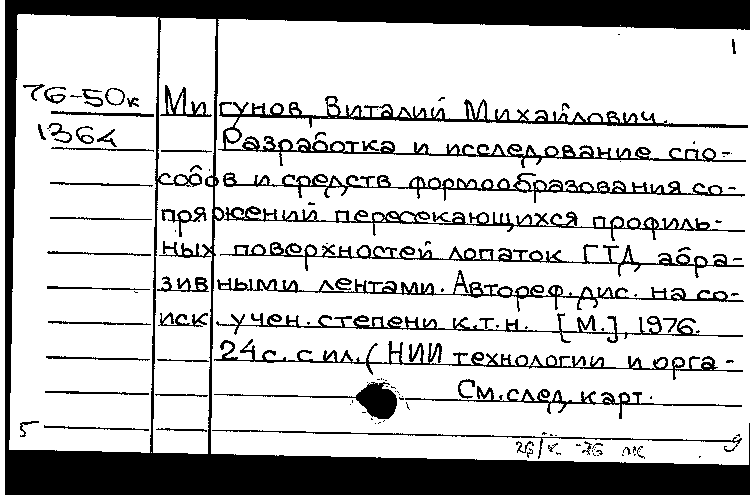 1
76-50к Мигунов, Виталий Михайлович.
1364 Разработка и исследование спо-
собов и средств формообразования со-
пряжений пересекающихся профиль-
ных поверхностей лопаток ГТД абра-
зивными лентами. Автореф. дис. на со-
иск. учен. степени к.т.н. [М.], 1976.
24 с. с ил. (НИИ технологии и орга-
См. след. карт.
5 9